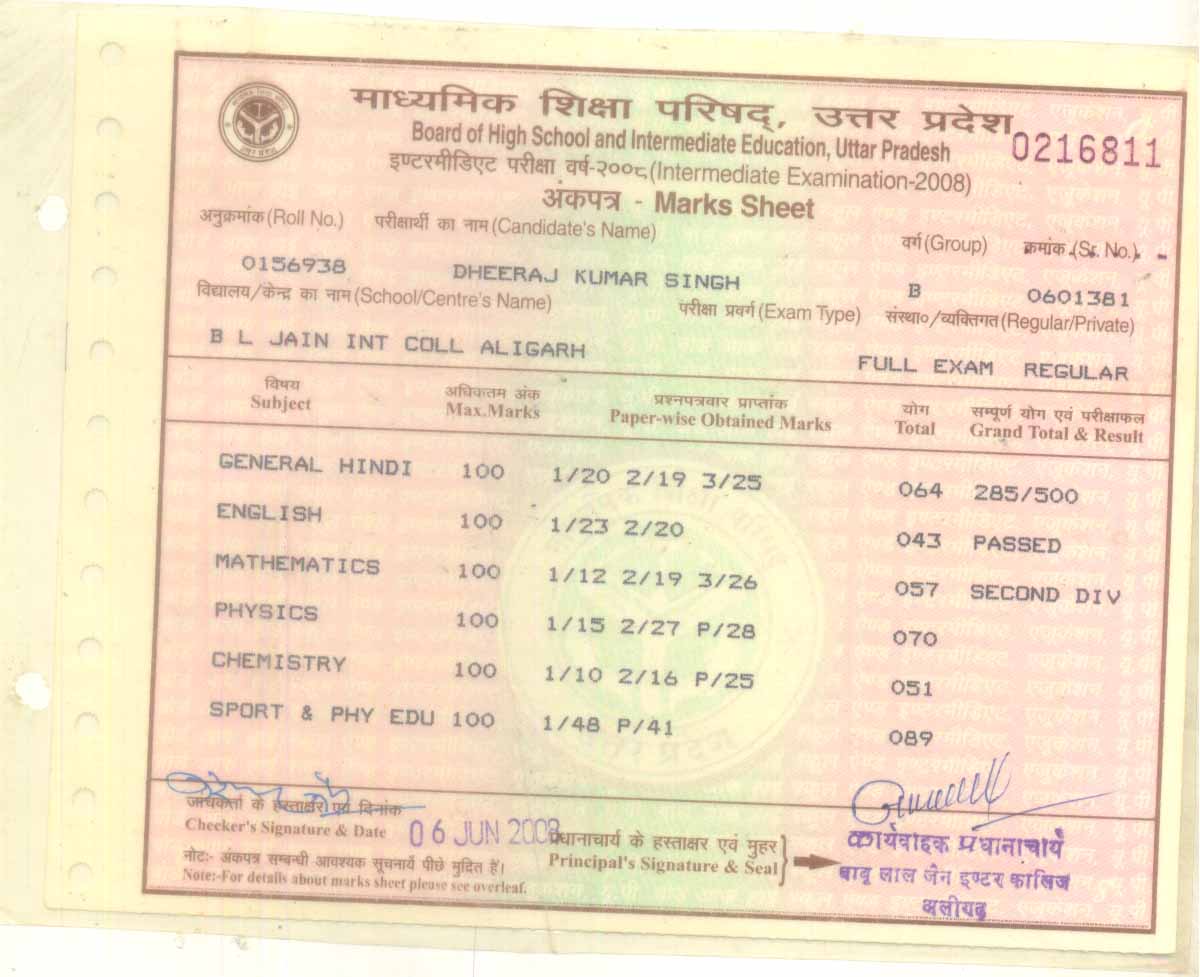 माध्यमिक शिक्षा परिषद्, उत्तर प्रदेश
Board of High School and Intermediate Education, Uttar Pradesh
0216811
इण्टरमीडिएट परीक्षा वर्ष-२००८ (Intermediate Examination-2008)
अंकपत्र - Marks Sheet
अनुक्रमांक (Roll No.) परीक्षार्थी का नाम (Candidate's Name) वर्ग (Group) क्रमांक (Sr. No.)
0156938 DHEERAJ KUMAR SINGH B 0601381
विद्यालय/केन्द्र का नाम (School/Centre's Name) परीक्षा प्रवर्ग (Exam Type) संस्था०/व्यक्तिगत (Regular/Private)
B L JAIN INT COLL ALIGARH FULL EXAM REGULAR
विषय अधिकतम अंक प्रश्नपत्रवार प्राप्तांक योग सम्पूर्ण योग एवं परीक्षाफल
Subject Max.Marks Paper-wise Obtained Marks Total Grand Total & Result
GENERAL HINDI 100 1/20 2/19 3/25 064 285/500
ENGLISH 100 1/23 2/20 043 PASSED
MATHEMATICS 100 1/12 2/19 3/26 057 SECOND DIV
PHYSICS 100 1/15 2/27 P/28 070
CHEMISTRY 100 1/10 2/16 P/25 051
SPORT & PHY EDU 100 1/48 P/41 089
जांचकर्ता के हस्ताक्षर एवं दिनांक
Checker's Signature & Date 06 JUN 2008
प्रधानाचार्य के हस्ताक्षर एवं मुहर
Principal's Signature & Seal
कार्यवाहक प्रधानाचार्य
बाबू लाल जैन इण्टर कालिज
अलीगढ़
नोट:- अंकपत्र सम्बन्धी आवश्यक सूचनायें पीछे मुद्रित हैं।
Note:-For details about marks sheet please see overleaf.